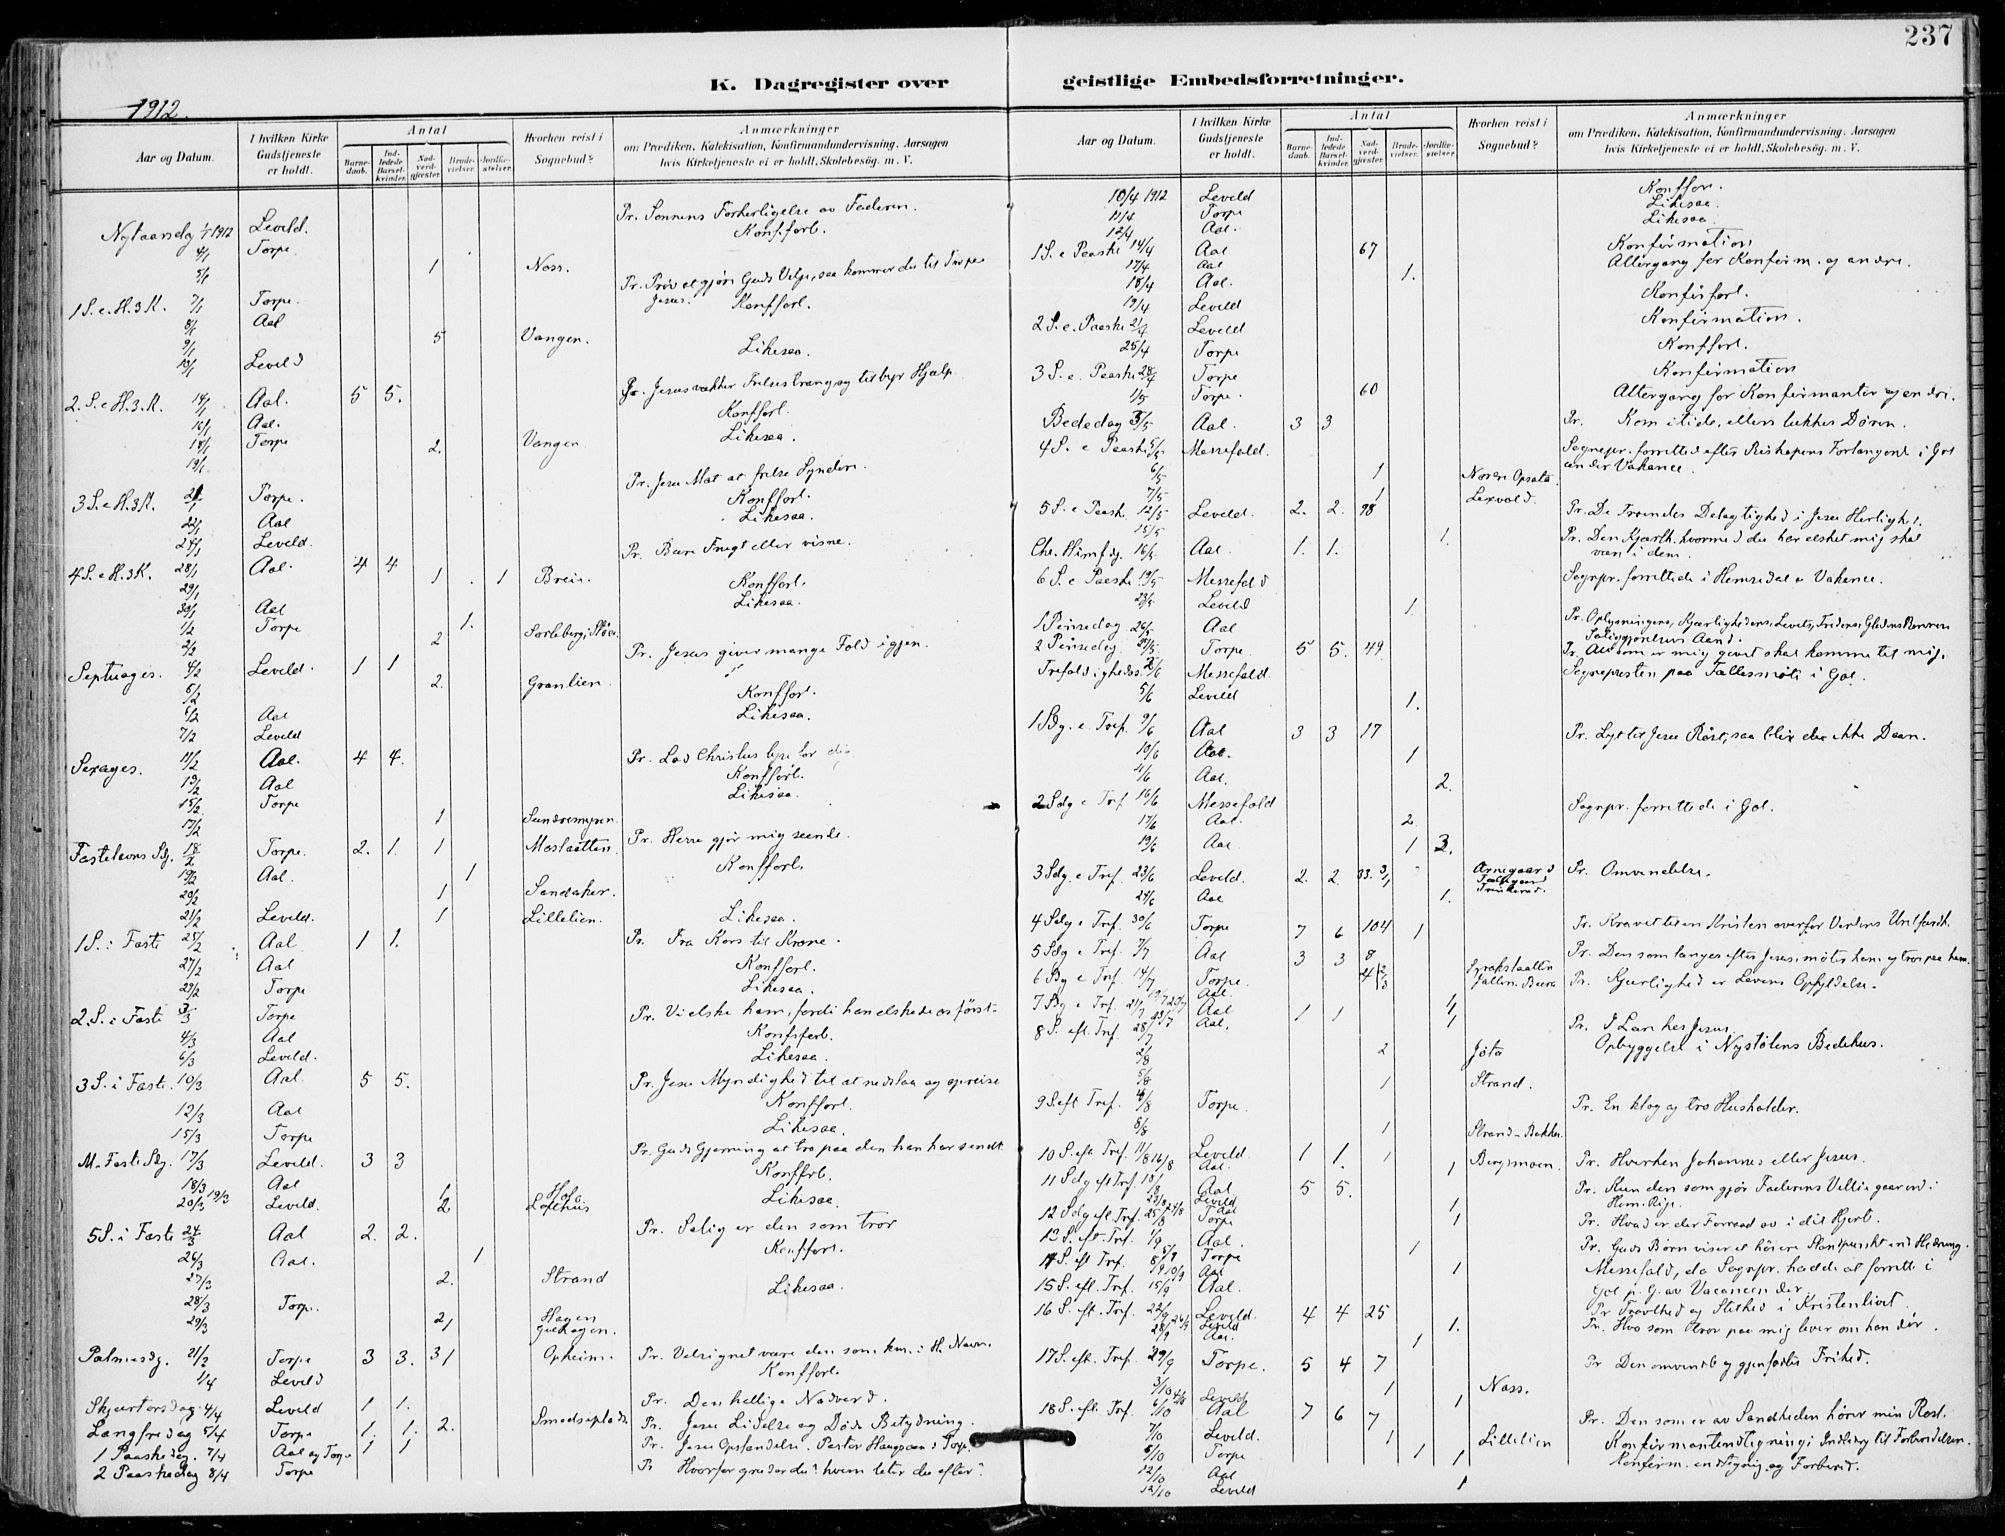 237
K. Dagregister over geistlige Embedsforretninger.
1912.
Aar og Datum.
I hvilken Kirke Gudstjeneste er holdt.
Antal
Barnedaab.
Indledede Barselkvinder.
Nadverdgjester.
Brudevielser.
Jordfæstelser.
Hvorhen reist i Sognebud?
Anmærkninger
om Prædiken, Katekisation, Konfirmandundervisning, Aarsagen
hvis Kirketjeneste ei er holdt, Skolebesøg. m. V.
Nytaarsdag 1/1 1912 Leveld. Pr. Sønnens Forherligelse av Faderen.
4/1 Torpe. Konfforb.
5/1 1 Noss.
1 S. e. H. 3 K. 7/1 Torpe. Pr. Prøv at gjøre Guds Vilje, saa kommer du til Troen paa Jesus.
8/1 Aal Konfforb.
9/1 5 Vangen.
Leveld Likesaa.
2. S. e H. 3. K. 14/1 Aal. 5 5. Pr. Jesus vækker Frelsestrang og tilbyr Hjælp.
16/1 Aal. Konfforb.
18/1 Torpe Likesaa.
19/1 2. Vangen
3 S. e H. 3 K. 21/1 Torpe. Pr. Jesu Mat at frelse Syndere.
22/1 Aal Konfforb.
24/1 Leveld. Likesaa.
4 S. e H. 3 K. 28/1 Aal. 4 4 Pr. Bære Frugt eller visne.
29/1 1 1 Breie.
30/1 Aal Konfforb.
1/2 Torpe 1. Likesaa.
2/2 2
Septuages. 4/2 Leveld. 1 1 Pr. Jesus giver mange Fold igjen.
5/2 2. Granlien.
6/2 Aal Konfforb.
7/2 Leveld Likesaa.
Sexages. 11/2 Aal. 4 4. Pr. Lad Christus lyse for dig
13/2 Aal Konfforb.
15/2 Torpe Likesaa.
17/2 1 Sundremyren.
Fastelavns Sdg. 18/2 Torpe. 2. 1. 1 Moslaatten. Pr. Herre gjør mig seende.
19/2 Aal. 1 Konfforb.
20/2 1 Sandaker.
21/2 Leveld. 1 Lillelien. Likesaa.
1 S. i Faste 25/2 Aal 1 1. Pr. Fra Kors til Krone.
27/2 Aal Konfforb.
29/2 Torpe Likesaa.
2. S. i Faste 3/3 Torpe Pr. Vi elske ham, fordi han elskede os först.
4/3 Aal Konfforb.
6/3 Leveld. Likesaa.
3 S. i Faste. 10/3 Aal. 5 5. Pr. Jesu Myndighed til at nedslaa og opreise
12/3 Aal Konfforb.
15/3 Torpe Likesaa.
M. Faste Sdg. 17/3 Leveld. 3 3 Pr. Guds Gjerning at tro paa den han har sendt
18/3 Aal Konfforb.
19/3 1 Hofa
20/3 Leveld. 2 Lofthus Likesaa.
5 S. i Faste 24/3 Aal 2. 2. Pr. Salig er den som tror
26/3 Aal. 1 Konfforb.
27/3 2. Strand
28/3 Torpe. Likesaa.
29/3 2 1 Hagen
Palmesdg. Torpe 3 3. 31 Opheim. Pr. Velsignet være den som km. i H. Navn.
1/4 Leveld Konfforb.
Skjærtorsdag 4/4 Leveld 1 1. Pr. Den hellige Nadverd.
Langfredag 5/4 Torpe 1. 1. 2. Smedsplads Pr. Jesu Lidelse og Døds Betydning.
1 Paaskedag. 7/4 Aal og Torpe 1 1 Pr. Jesu Opstandelse. Pastor Haugaen i Torpe.
2 Paaskedag 8/4 Torpe Pr Hvorfor græder du? hvem leter du efter?
Aar og Datum.
I hvilken Kirke Gudstjeneste er holdt.
Antal
Barnedaab.
Indledede Barselkvinder.
Nadverdgjester.
Brudevielser.
Jordfæstelser.
Hvorhen reist i Sognebud?
Anmærkninger
om Prædiken, Katekisation, Konfirmandundervisning, Aarsagen
hvis Kirketjeneste ei er holdt, Skolebesøg. m. V.
10/4 1912 Leveld Konffor.
11/4 Torpe Likesaa.
12/4 Aal. Likesaa.
1 S. e Paaske 14/4 Aal 67 Konfirmation
17/4 Aal 1. Altergang for Konfirm. og andre.
18/4 Aal. Konfirforb.
19/4 Leveld
2 S. e. Paaske 21/4 Leveld Konfirmation.
25/4 Torpe Konfforb.
3 S. e. Paaske 28/4 Torpe Konfirmation
1/5 Torpe. 60 Altergang for Konfirmanter og andre.
Bededag 3/5 Aal. 3 3 Pr. Kom itide, ellers lukkes Døren.
4 S. e Paaske 5/5 Messefald. Sognepr. forretted efter Biskopens Forlangende i Gol under Vakance.
6/5 1 Nordre Opsata
7/5 1 Lexvold.
5 S. e Paask 12/5 Leveld. 2. 2. 98 Pr. De Troendes Delagtighed i Jesu Herlighet.
15/5 1.
Chr. Himfdg. 16/5 Aal. 1. 1. Pr. Den Kjærlh. hvormed du har elsket mig skal være i dem.
6 S. e Paaske 19/5 Messefald Sognpr. forrettede i Hemsedal v Vakance.
23/5 Leveld 1.
1 Pinsedag 26/5 Aal Pr. Oplysningens, Kjærlighedens, Levets, Fredens, Glædens
2 Pinsedag. 27/5 Torpe. 5 5. 49 Pr. Alt som er mig givet skal komme til mig.
Trefoldighedss. 2/6 Messefald. Sognepresten paa Fællesmøte i Gol.
5/6 Leveld 1.
1 Sdg. e. Tref. 9/6 Aal 3 3 17 Pr. Lyt til Jesu Røst, saa blir der ikke Døen.
10/6 Aal. 1
11/6 Aal. 2.
2 Sdg e Tref 16/6 Messefald Sognpr. forrettede i Gol.
17/6 Aal. 2.
19/6 Aal 1 3.
3 Sdg. e Tref. 23/6 Leveld. 2. 2 Arnegaard Pr. Omvendelse.
24/6 Aal 1.
4 Sdg e Tref. 30/6 Torpe 7 6 104 1 Pr. Kravet til en Kristen overfor Verdens
5 Sdg e Tref. 7/7 Aal 3 3 8 Pr. Den som længes efter Jesus, møter ham og tror paa ham.
6 Sdg e Tref. 14/7 Torpe. 4 Pr. Kjærlighed er Lovens Opfyldelse.
7 Sdg e Tref. 21/7 Aal 1 1
8 S. eft. Tref. 28/7 Aal. Pr. I Løn hos Jesus.
2/8 2 Jøto Opbyggelse i Nystølens Bedehus.
5/8 1 Strand.
9 S. eft Tref. 4/8 Torpe. Pr. En klog og tro Husholder.
8/8 1 Strand-Bakken
10 S. eft. Tref. 11/8 Leveld. 1 1. 1 Bergsmoen. Pr. Hverken Johannes eller Jesus.
16/8 Aal. 1
11 Sdg eft Tref. 18/8 Aal 5 5. Pr. Kun den som gjør Faderens Villie gaar ind i Hem. Rige.
12 Sdg eft. Tref. 25/8 Torpe Pr. Hvad er der Forraad av i dit Hjert.
13 S. eft. Tref. 1/9 Aal. Pr. Guds Børn viser et høiere Standpunkt end Hedning.
14 S. eft Tref. 8/9 Torpe Messefald, da Sognpr. hadde at forrette i
15 S. eft. Tref. 15/9 Aal. Gol p. G. av Vacancen der.
16 S. eft. Tref. 22/9 Leveld. 4 4 25 Pr Travlhed og Stilhed i Kristenlivet
1. Pr. Hvo som tror paa mig lever om han dør.
17 S. eft. Tref. 29/9 Torpe. 5 4 7 Pr Den omvendte og gjenfødtes Frihed.
3/10 1 Noss.
18 S. eft. Tref. 6/10 Aal 7 6 7 Pr. Den som er av Sandheden hører min Røst.
7/10 Leveld. 1 Lillelien Konfirmantindtegning; Indledng til Forberedelsen.
Torpe 1 1 Konfirm. indtegning og Forbered.
12/10 Aal
12/10 Leveld 1